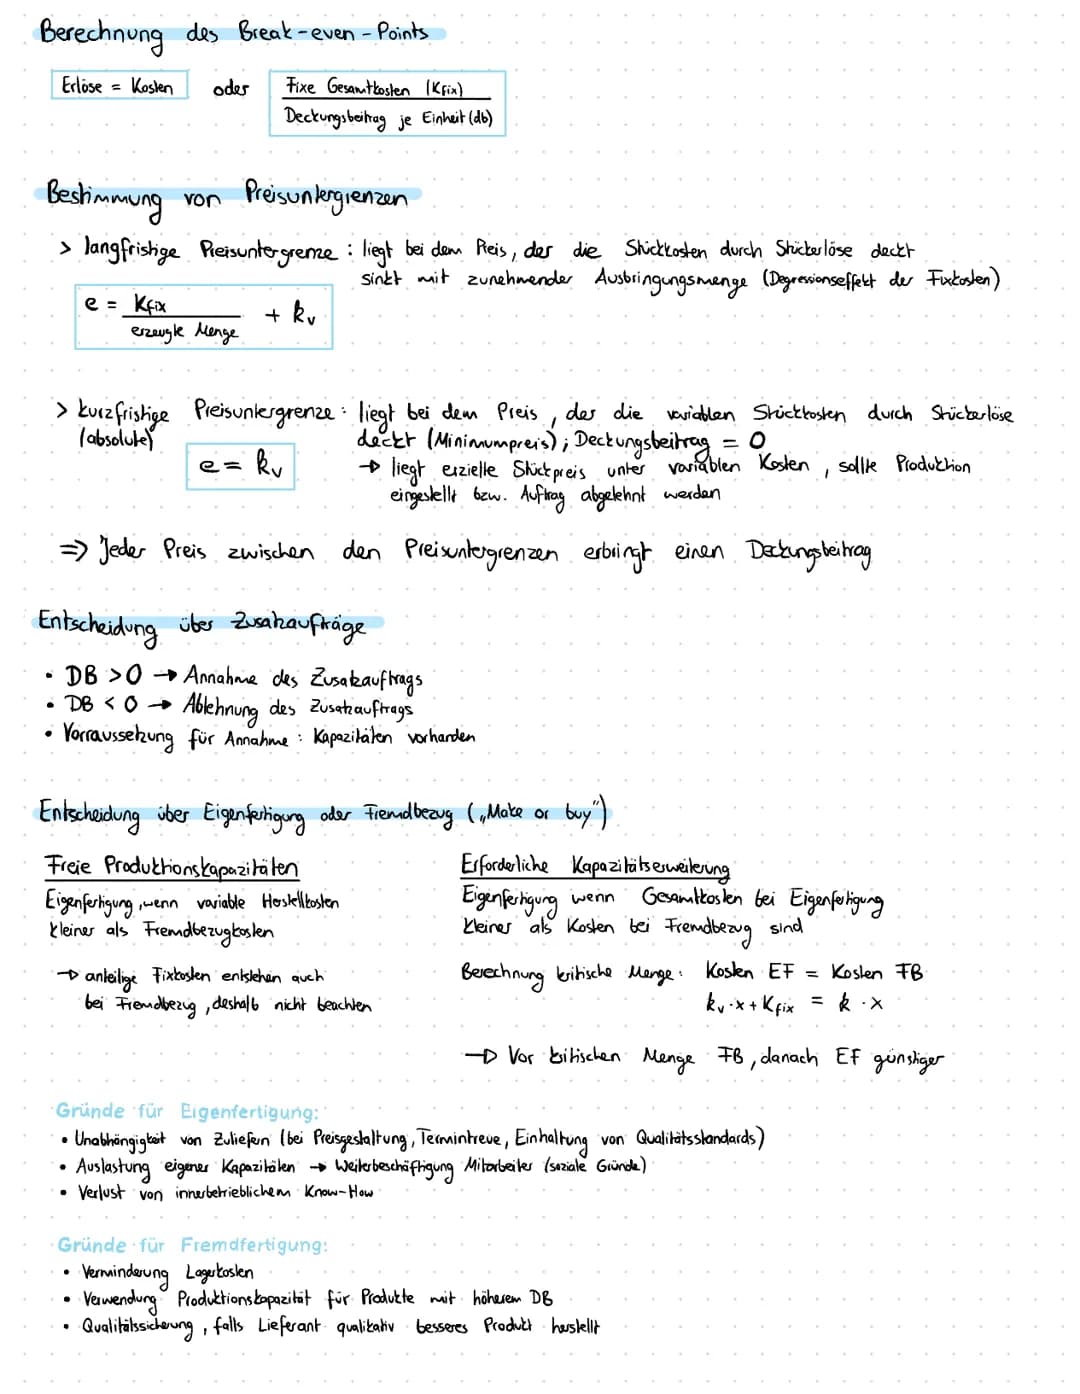 Berechnung des Break-even-Points
Erlöse = Kosten oder Fixe Gesamtkosten (Kfix)
Deckungsbeitrag je Einheit (db)
Bestimmung von Preisuntergrenzen
> langfristige Preisuntergrenze : liegt bei dem Preis, der die Stückkosten durch Stückerlöse deckt
sinkt mit zunehmender Ausbringungsmenge (Degressionseffekt der Fixkosten)
e = Kfix / erzeugte Menge + kv
> kurzfristige Preisuntergrenze : liegt bei dem Preis, der die variablen Stückkosten durch Stückerlöse
(absolute) deckt (Minimumpreis) ; Deckungsbeitrag = 0
e = kv
→ liegt erzielte Stückpreis unter variablen Kosten, sollte Produktion
eingestellt bzw. Auftrag abgelehnt werden
=> Jeder Preis zwischen den Preisuntergrenzen erbringt einen Deckungsbeitrag
Entscheidung über Zusatzaufträge
• DB > 0 → Annahme des Zusatzauftrags
• DB < 0 → Ablehnung des Zusatzauftrags
• Vorraussetzung für Annahme : Kapazitäten vorhanden
Entscheidung über Eigenfertigung oder Fremdbezug („Make or buy")
Freie Produktionskapazitäten
Eigenfertigung, wenn variable Herstellkosten
kleiner als Fremdbezugkosten
→ anteilige Fixkosten entstehen auch
bei Fremdbezug, deshalb nicht beachten
Erforderliche Kapazitätserweiterung
Eigenfertigung wenn Gesamtkosten bei Eigenfertigung
kleiner als Kosten bei Fremdbezug sind
Berechnung kritische Menge : Kosten EF = Kosten FB
kv · x + Kfix = k · x
→ Vor kritischen Menge FB, danach EF günstiger
Gründe für Eigenfertigung:
• Unabhängigkeit von Zuliefern (bei Preisgestaltung, Termintreue, Einhaltung von Qualitätsstandards)
• Auslastung eigener Kapazitäten → Weiterbeschäftigung Mitarbeiter (soziale Gründe)
• Verlust von innerbetrieblichem Know-How
Gründe für Fremdfertigung:
• Verminderung Lagerkosten
• Verwendung Produktionskapazität für Produkte mit höherem DB
• Qualitätssicherung, falls Lieferant qualitativ besseres Produkt herstellt